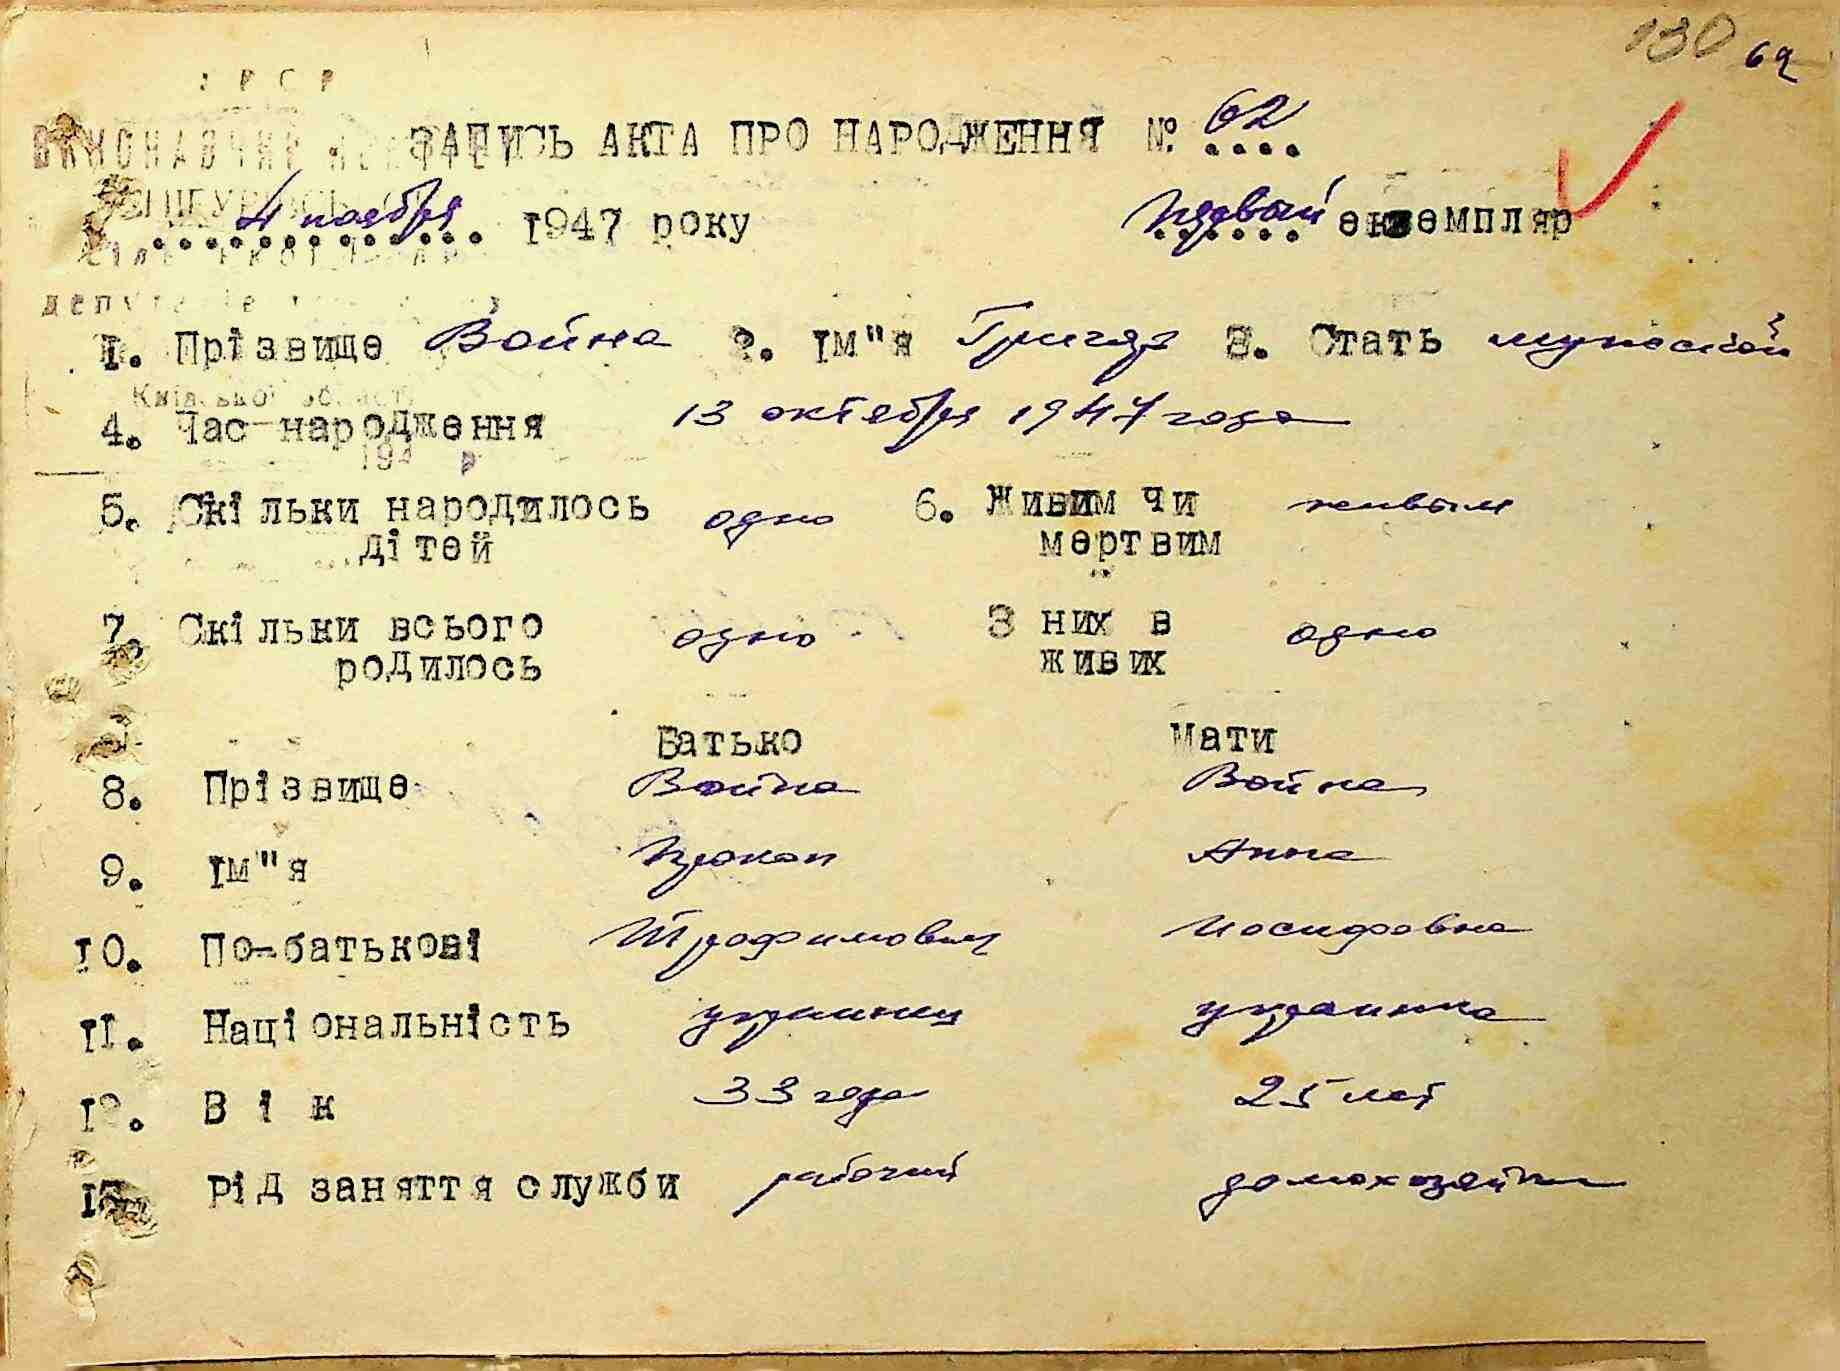 130 62
УРСР
ВИКОНАВЧИЙ
ЗАПИСЬ АКТА ПРО НАРОДЖЕННЯ №. 62
4 ноября 1947 року первый екземпляр
депутатів
1. Прізвище Война 2. Ім"я Григор 3. Стать мужской
Київської області
4. Час народження 13 октября 1947 года
194 р
5. Скільки народилось одно 6. Живим чи живым
дітей мертвим
7. Скільки всього одно З них в одно
родилось живих
Батько Мати
8. Прізвище Война Война
9. Ім"я Прокоп Анна
10. По-батькові Трофимович Иосифовна
11. Національність украинец украинка
12. Вік 33 года 25 лет
13. Рід заняття служби рабочий домохозяйка